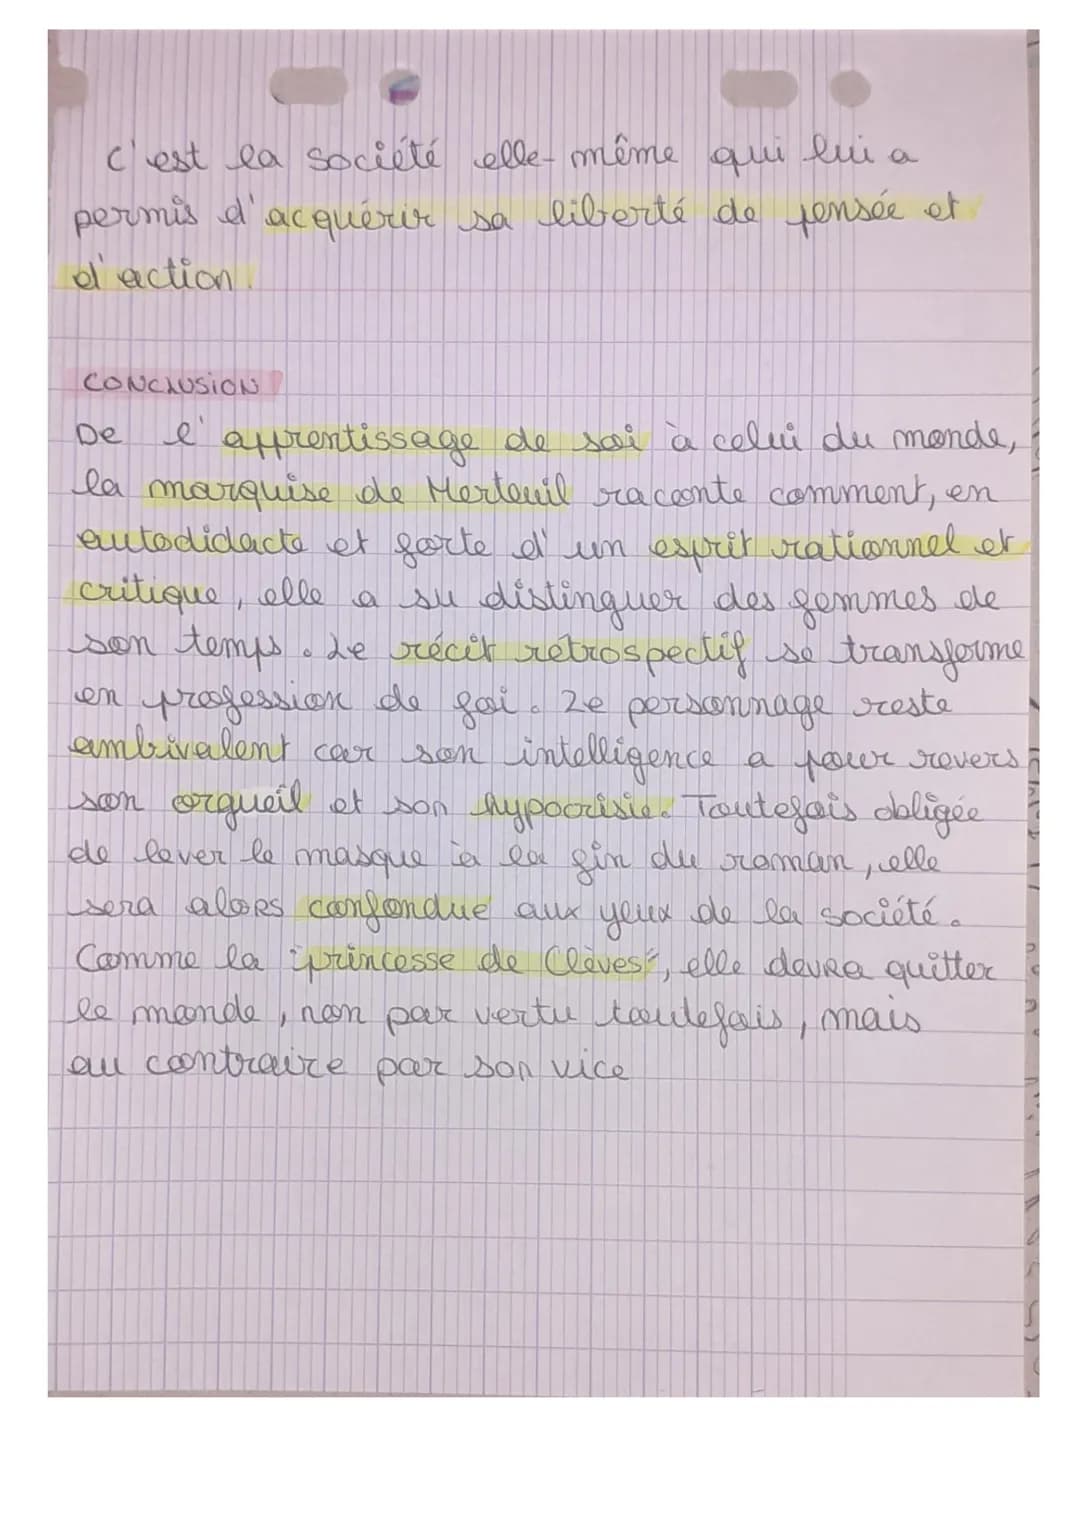 c'est la société elle-même qui lui a
permis d'acquérir sa liberté de pensée et
d'action.
CONCLUSION
De l'apprentissage de soi à celui du monde,
la marquise de Merteuil raconte comment, en
autodidacte et forte d'un esprit rationnel et
critique, elle a su distinguer des femmes de
son temps. Le récit rétrospectif se transforme
en profession de foi. Le personnage reste
ambivalent car son intelligence a pour revers
son orgueil et son hypocrisie. Toutefois obligée
de lever le masque à la fin du roman, elle
sera alors confondue aux yeux de la société.
Comme la "princesse de Clèves", elle devra quitter
le monde, non par vertu toutefois, mais
au contraire par son vice